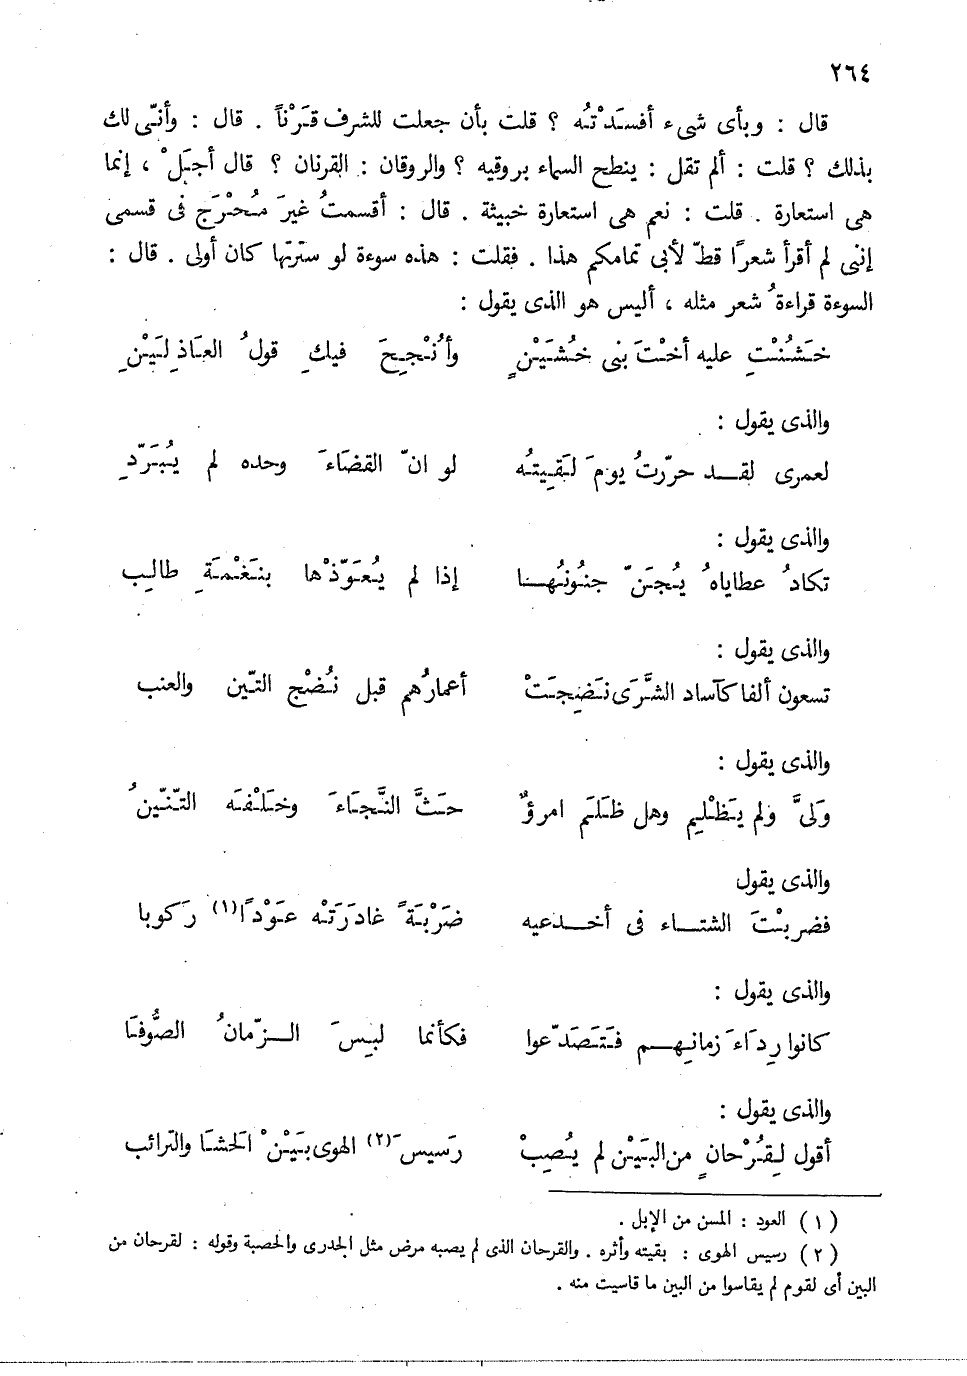 ٢٦٤
قال : وبأى شىء أفسَدْتُه ؟ قلت بأن جعلت للشرف قَرْناً . قال : وأنّى لك
بذلك ؟ قلت : ألم تقل : ينطح السماء بروقيه ؟ والروقان : القرنان ؟ قال أجَلْ ، إنما
هى استعارة . قلت : نعم هى استعارة خبيثة . قال : أقسمتُ غيرَ مُحْرَج فى قسمى
إننى لم أقرأ شعرًا قطّ لأبى تمامكم هذا . فقلت : هذه سوءة لو سترتها كان أولى . قال :
السوءة قراءةُ شعر مثله ، أليس هو الذى يقول :
خَشُنْتِ عليه أختَ بنى خُشَيْنٍ وأُنْجِحَ فيكِ قولُ العَاذِلَيْنِ
والذى يقول :
لعمرى لقد حرّرتُ يومَ لَقِيتُه لو انّ القضَاءَ وحده لم يُبَرّدِ
والذى يقول :
تكادُ عطاياهُ يُجَنّ جنُونُهُنا إذا لم يُعَوّذْها بنَغْمَةِ طالِب
والذى يقول :
تسعون ألفا كآساد الشَّرَى نَضِجَتْ أعمارُهم قبل نُضْج التّين والعنب
والذى يقول :
وَلىَّ ولم يَظْلِم وهل ظَلَم امرؤٌ حَثَّ النَّجَاءَ وخَلْفَه التّنّينُ
والذى يقول
فضربْتَ الشتاء فى أخدعيه ضَرْبَةً غادَرَتْه عَوْدًا(١) رَكوبا
والذى يقول :
كانوا رِدَاءَ زمانِهم فتَصَدّعوا فكأنما لبِسَ الزّمانُ الصُّوفَا
والذى يقول :
أقول لِقُرْحانٍ من البَيْن لم يُصِبْ رَسيسَ(٢) الهوى بَيْنْ الحشَا والترائب
(١) العود : المسن من الإبل .
(٢) رسيس الهوى : بقيته وأثره . والقرحان الذى لم يصبه مرض مثل الجدرى والحصبة وقوله : لقرحان من
البين أى لقوم لم يقاسوا من البين ما قاسيت منه .